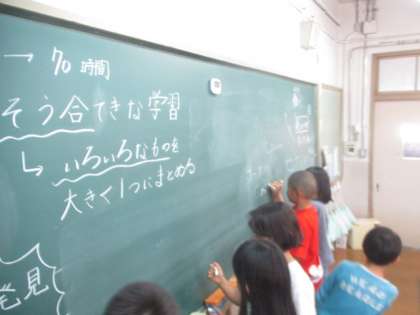 → 70 時間
そう合てきな学習
↳ いろいろなものを
大きく1つにまとめる
発見